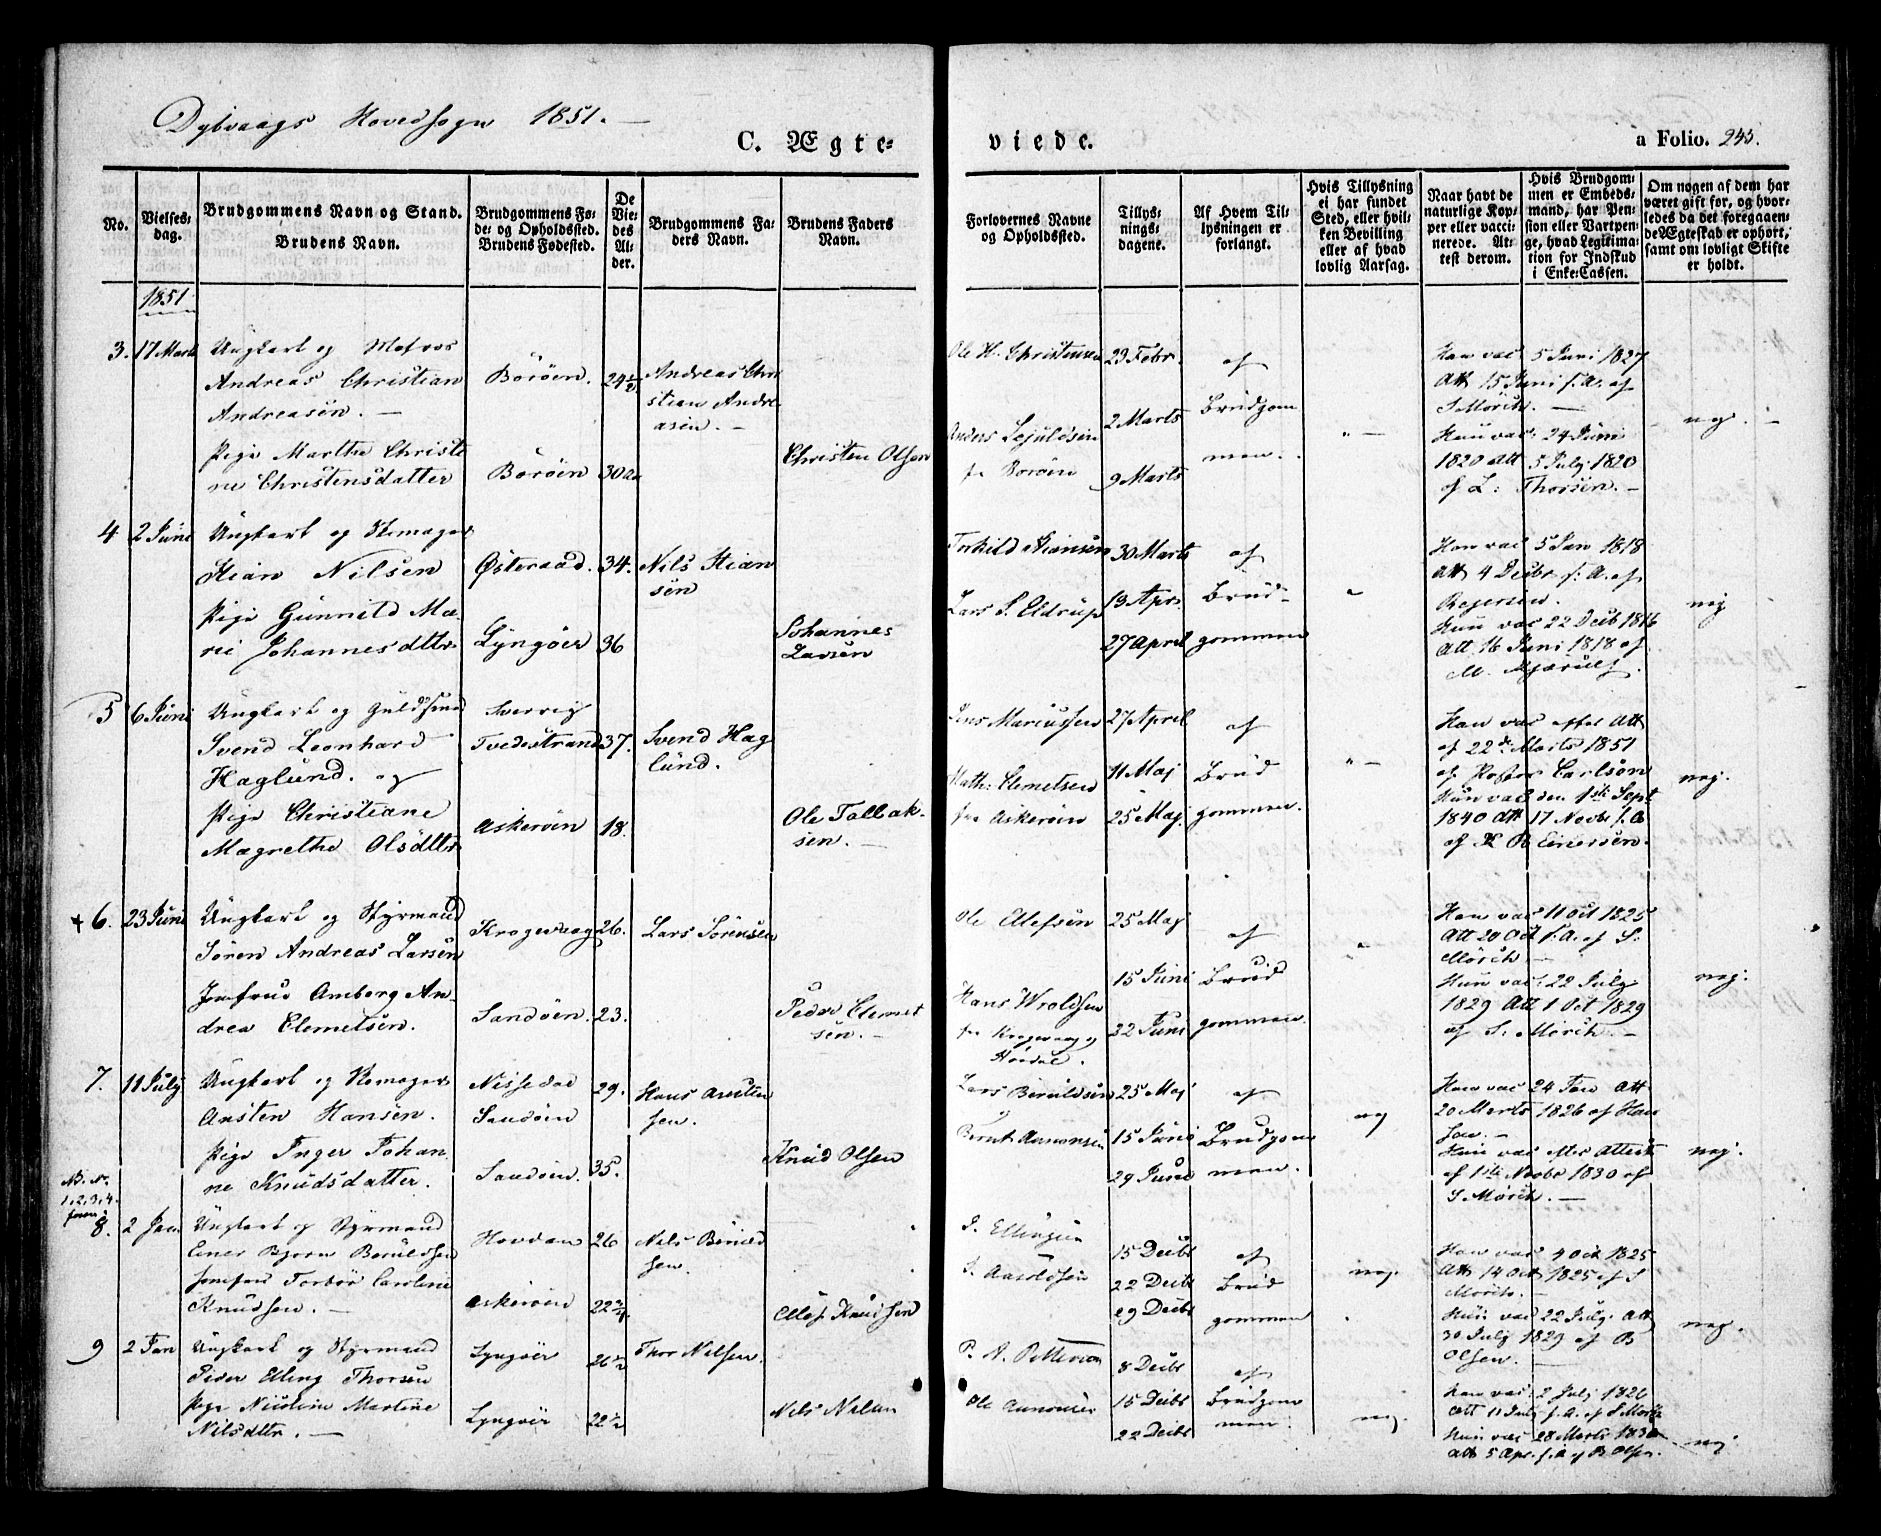 Dybvaags Hovedsogn 1851.
C. Ægte-
viede.
a Folio. 245.
No.
Vielses-
dag.
Brudgommens Navn og Stand.
Brudens Navn.
Brudgommens Fø-
de- og Opholdssted.
Brudens Fødested.
De
Vie-
des
Al-
der.
Brudgommens Fa-
ders Navn.
Brudens Faders
Navn.
Forlovernes Navne
og Opholdssted.
Tillys-
nings-
dagene.
Af Hvem Til-
lysningen er
forlangt.
Hvis Tillysning
ei har fundet
Sted, eller hvil-
ken Bevilling
eller af hvad
lovlig Aarsag.
Naar havt de
naturlige Kop-
per eller vacci-
nerede. At-
test derom.
Hvis Brudgom-
men er Embeds-
mand, har Pen-
sion eller Vartpen-
ge, hvad Legitima-
tion for Indskud
i Enke-Cassen.
Om nogen af dem har
været gift før, og hvor-
ledes da det foregaaen-
de Ægteskab er ophørt,
samt om lovligt Skifte
er holdt.
1851
3. 17 Marts
Ungkarl og Matros
Andreas Christian
Andreasen.
Pige Marthe Christi
ne Christensdatter
Borøen.
Borøen
24 1/2
30 Aar
Andreas Chri
stian Andre-
asen.
Christen Olsen
Ole H. Christensen
Anders
fra Borøen
23 Febr.
2 Marts
9 Marts
af
Brudgom
men.
Han vac 5 Juni 1827
Att 15 Juni s. A. af
S Mörch.
Hun vac 24 Juni
1820 Att 5 July 1820
af L: Thorsen.
nej.
4 2 Juni
Ungkarl og
Stian Nilsen
Pige Gunnild Ma-
rie Johannesdttr.
Østeraad.
Lyngøer
34.
36
Nils Stian
sen
Johannes
Larsen
Torkild Stiansen
Lars S. Eldrup
30 Marts
13 Apr.
27 April
af
Brud-
gommen
Han vac 5 Jan 1818
Att 4 Decbr s: A. af
Hun vac 22 Decb 1816
Att 16 Juni 1818 af
nej
5 6 Juni
Ungkarl og Guldsmed
Svend Leonhard
Haglund. og
Pige Christiane
Magrethe Olsdttr
Sverrig
Tvedestrand
Askerøen
37.
18.
Svend Hag
lund.
Ole Tallak-
sen.
Jens Mariussen
Math: Clemetsen
fra Askerøen
27 April
11 Maj
25 Maj
af
Brud
gommen.
Han vac efter Att
af 22de Marts 1851
af Pastor Carlson
Hun vac den 1ste Sept
1840 Att 17 Novbr s. A
af R Einersen.
nej.
+ 6. 23 Juni
Ungkarl og Styrmand
Søren Andreas Larsen
Jomfrue Amborg An-
drea Clemetsen.
Kragevaag
Sandøen.
26.
23.
Lars Sørensen
Peder Clemet
sen.
Ole Ellefsen
Hans Wroldsen
fra Kragevaag og
25 Maj
15 Juni
22 Juni
af
Brud
gommen.
Han vac 11 Oct 1825
Att 20 Oct s. A. af S:
Mörch.
Hun vac: 22 July
1829 Att 1 Oct 1829
af S: Mörch.
nej.
7. 11 July
Ungkarl og
Austen Hansen.
Pige Inger Johan
ne Knudsdatter.
Nissedal
Sandøen
Sandøen.
29.
35.
Hans Austen
sen.
Knud Olsen
Lars Beruldsen
Bernt Aanonsen
25 Maj
15 Juni
29 Juni
af
Brudgom
men.
nej
Han vac 24 Jan Att
20 Marts 1826 af Han
sen.
Hun vac
af 1ste Novbr 1830 af
S. Mörch.
nej.
NB. No.
1, 2, 3, 4.
8. 2 Jan
Ungkarl og Styrmand
Einer Bjorn Beruldsen
Jomfru Torbor Caroline
Knudsen.
Hovdan
Askerøen
26
22 3/4
Nils Beruld
sen.
Ellef Knudsen
J. Ellingsen
15 Decbr
22 Decbr
29 Decbr
af
Brud
gommen
nej.
Han vac 4 Oct 1825
Att 14 Oct 1825 af S
Mörch.
Hun vac 22 July Att
30 July 1829 af B
Olsen.
nej.
9 2 Jan
Ungkarl og Styrmand
Peder Elling Thorsen
Pige Nicoline Martine
Nilsdttr.
Lyngøer
Lyngøer
26 1/2
22 1/2
Thor Nilsen.
Nils Nilsen
P. A. Pettersen
Ole Aanonsen
8 Decbr
15 Decbr
22 Decbr
af
Brudgom
men.
nej.
Han vac 2 July 1826
Att 11 July s. A. af S Mörch
Hun vac 28 Marts 1830
Att 5 Apr. s. A af B Olsen.
nej